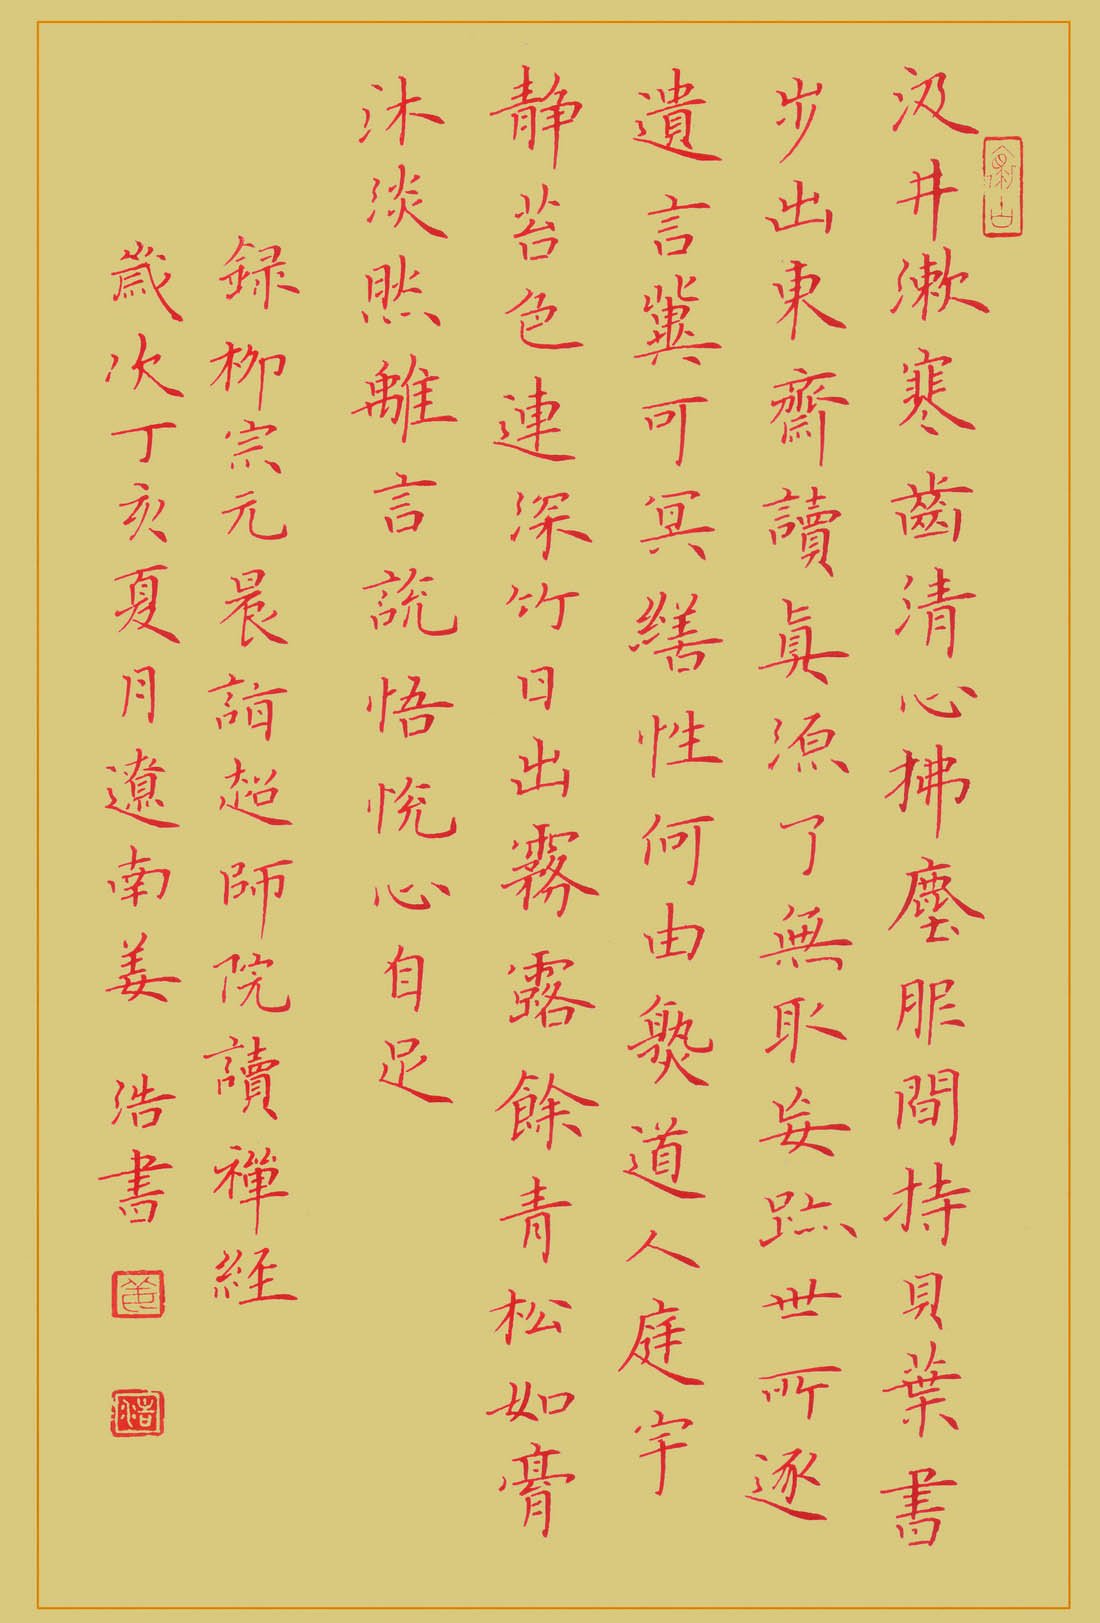 汲井漱寒齒清心拂塵服間持貝葉書
步出東齋讀真源了無取妄跡世所逐
遺言冀可冥繕性何由熟道人庭宇
静苔色連深竹日出霧露餘青松如膏
沐淡然離言説悟悅心自足
録柳宗元晨詣超師院讀禪経
歲次丁亥夏月遼南姜浩書